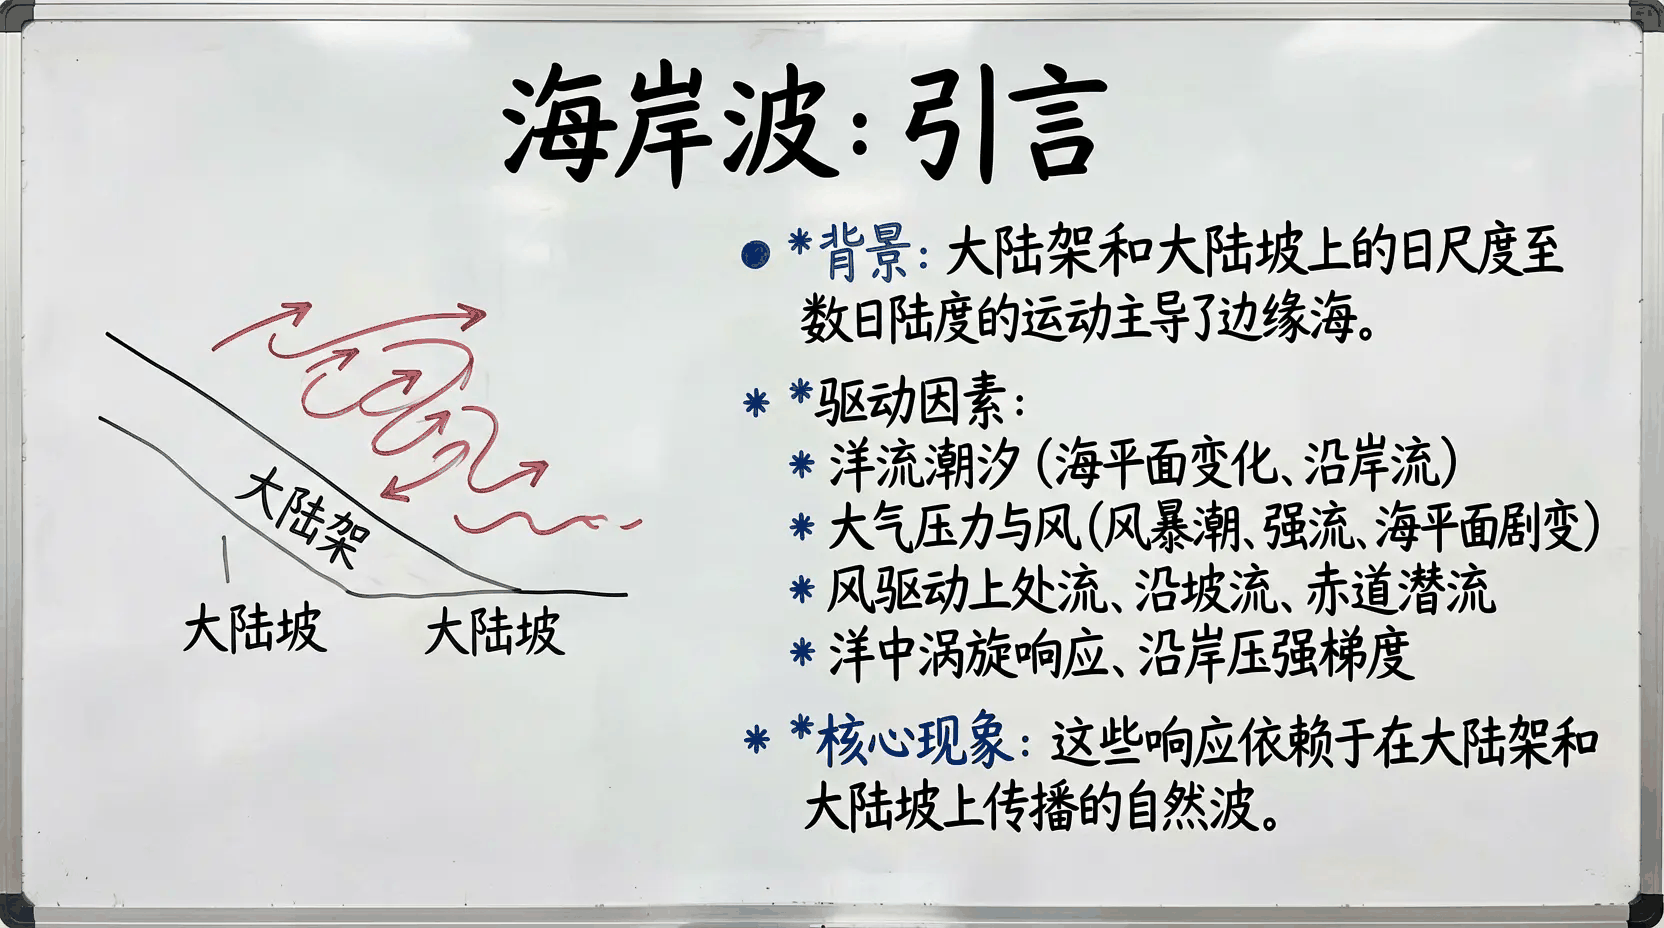 海岸波：引言
* 背景：大陆架和大陆坡上的日尺度至
数日陆度的运动主导了边缘海。
* *驱动因素：
* 洋流潮汐（海平面变化、沿岸流）
* 大气压力与风（风暴潮、强流、海平面剧变）
* 风驱动上处流、沿坡流、赤道潜流
* 洋中涡旋响应、沿岸压强梯度
* *核心现象：这些响应依赖于在大陆架和
大陆坡上传播的自然波。
大陆架
大陆坡
大陆坡